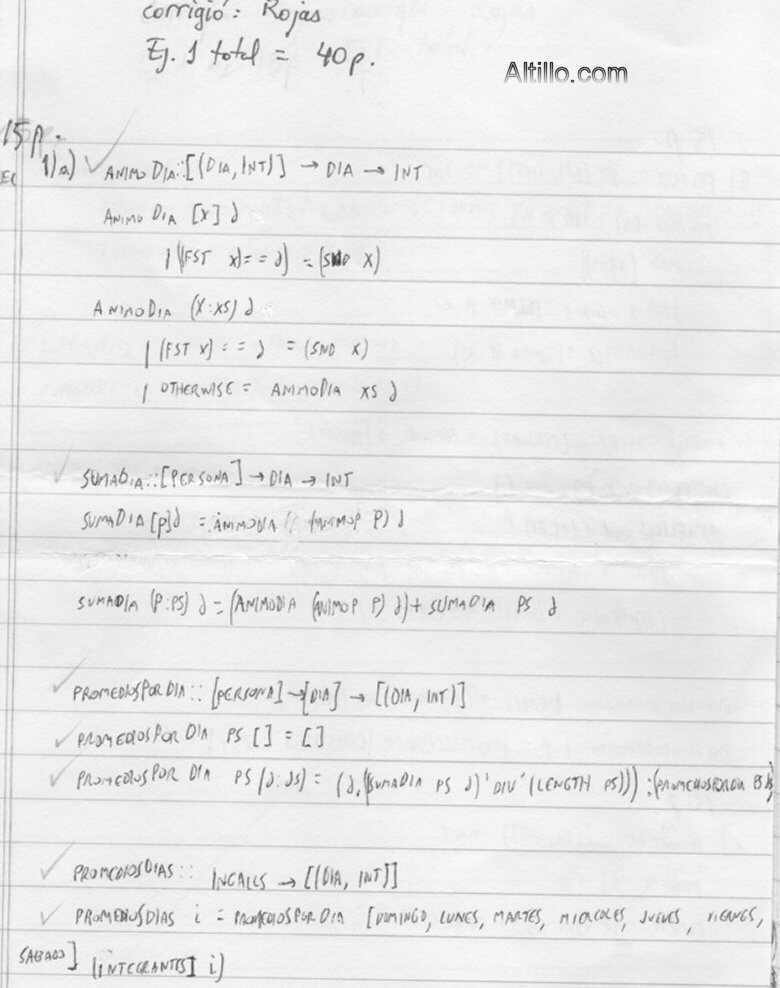 corrigió: Rojas
Ej. 1 total = 40p.
Altillo.com
15p.
1)a) ANIMO DIA::[(DIA, INT)] → DIA → INT
ANIMO DIA [X] d
| (FST X) == d) = (SND X)
ANIMODIA (X:XS) d
| (FST X) == d = (SND X)
| OTHERWISE = ANIMODIA XS d
SUMADIA::[PERSONA] → DIA → INT
SUMADIA [P] d = ANIMODIA (ANIMOP P) d
SUMADIA (P:PS) d = (ANIMODIA (ANIMOP P) d) + SUMADIA PS d
PROMEDIOSPORDIA:: [PERSONA] → [DIA] → [(DIA, INT)]
PROMEDIOSPOR DIA PS [] = []
PROMEDIOSPOR DIA PS (d:ds) = (d, ((SUMADIA PS d) 'DIV' (LENGTH PS))) : (PROMEDIOSPORDIA PS ds)
PROMEDIOSDIAS:: INCALLS → [(DIA, INT)]
PROMEDIOSDIAS i = PROMEDIOSPORDIA [DOMINGO, LUNES, MARTES, MIERCOLES, JUEVES, VIERNES,
SABADO] (INTEGRANTESI i)